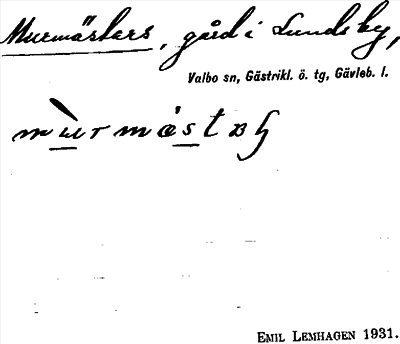 Murmästars, gård i Lundsby,
Valbo sn, Gästrikl. ö. tg, Gävleb. l.
EMIL LEMHAGEN 1931.